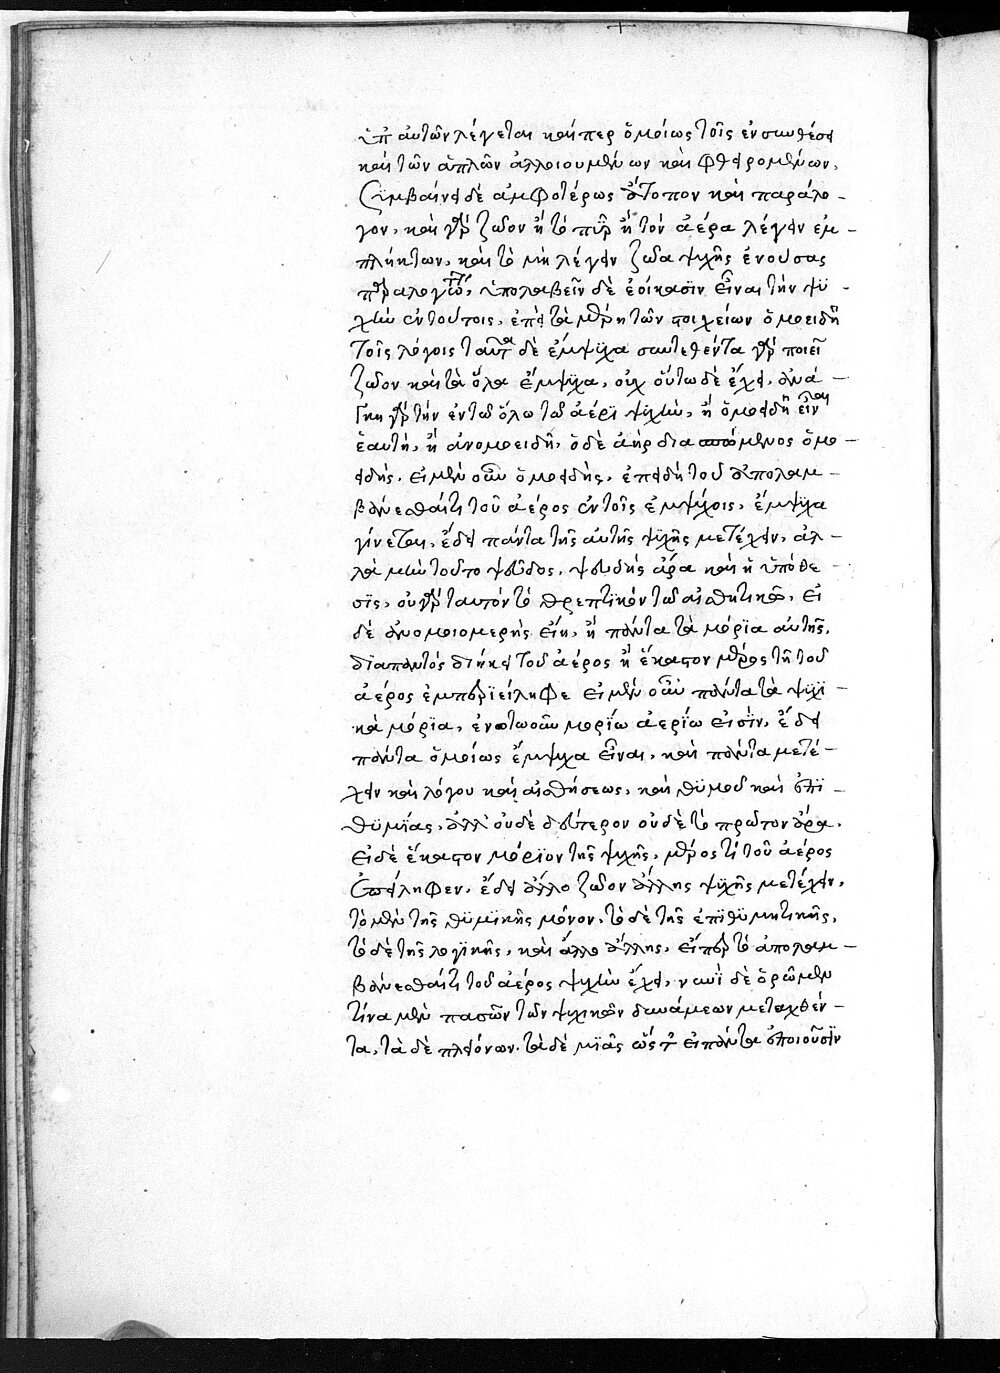 ὑπ αὐτῶν λέγεται καίπερ ὁμοίως τοῖς ἐν συνθέσει
καὶ τῶν ἁπλῶν ἀλλοιουμένων καὶ φθειρομένων.
Συμβαίνει δὲ ἀμφοτέρως ἄτοπον καὶ παράλο-
γον, καὶ γὰρ ζῶον ἢ τὸ πῦρ ἢ τὸν ἀέρα λέγειν ἐμ-
πλήκτων, καὶ τὸ μὴ λέγειν ζῶα ψυχῆς ἐνούσας
παραλογώτ, ὑπολαβεῖν δὲ ἐοίκασϊν εἶναι τὴν ψϋ-
χὴν ἐν τούτοις, ἐπεὶ τὰ μέρη τῶν στοιχείων ὁμοειδῆ
τοῖς λόγοις ταῦτα δὲ ἔμψϋχα συντεθέντα γὰρ ποιεῖ
ζῶον καὶ τὰ ὅλα ἔμψϋχα, οὐχ οὕτω δὲ ἔχει, ἀνά-
γκη γὰρ τὴν ἐν τῶ ὅλω τῶ ἀέρϊ ψυχὴν, ἢ ὁμοειδῆ εἶναι
ἑαυτῆ, ἢ ἀνομοειδῆ, ὁ δὲ ἀὴρ διασπώμενος ὁμο-
ειδής. εἰ μὲν οὖν ὁμοειδὴς, ἐπειδὴ τοῦ ἀπολαμ-
βάνεσθαί τι τοῦ ἀέρος ἐν τοῖς ἐμψύχοις, ἔμψυχα
γίνεται, ἔδει πάντα τῆς αὐτῆς ψυχῆς μετέχειν, ἀλ-
λὰ μὴν τοῦτο ψεῦδος, ψευδὴς ἄρα καὶ ἡ ὑπόθε-
σϊς, οὐ γὰρ ταυτὸν τὸ θρεπτϊκὸν τῶ αἰσθητικῶ, εἰ
δὲ ἀνομοιομερὴς εἴη, ἢ πάντα τὰ μόρϊα αὐτῆς,
δϊαπαντὸς διήκει τοῦ ἀέρος ἢ ἕκαστον μέρος τῆ τοῦ
ἀέρος ἐμπεριείληφε εἰ μὲν οὖν πάντα τὰ ψυχϊ-
κὰ μόρϊα, ἑνστωοῦν μορίω ἀερίω εἰσὶν, ἔδει
πάντα ὁμοίως ἔμψυχα εἶναι, καὶ πάντα μετέ-
χειν καὶ λόγου καὶ αἰσθήσεως, καὶ θϋμοῦ καὶ ἐπϊ-
θϋμΐας, ἀλλ' οὐδὲ δεύτερον οὐδὲ τὸ πρῶτον ἄρα.
εἰ δὲ ἕκαστον μόρϊον τῆς ψυχῆς, μέρος τὶ τοῦ ἀέρος
ἐπείληφεν, ἔδει ἄλλο ζῶον ἄλλης ψυχῆς μετέχειν,
τὸ μὲν τῆς θϋμϊκῆς μόνον, τὸ δὲ τῆς ἐπϊθϋμητικῆς,
τὸ δὲ τῆς λογϊκῆς, καὶ ἄλλο ἄλλης, εἴπερ τὸ ἀπολαμ-
βάνεσθαί τι τοῦ ἀέρος ψυχὴν ἔχει, νυνὶ δὲ ὁρῶμεν
τίνα μὲν πασῶν τῶν ψυχικῶν δυνάμεων μετασχθέν-
τα, τὰ δὲ πλειόνων, τὰ δὲ μϊᾶς ὥστ εἰ πάντα ἐποιοῦσϊν